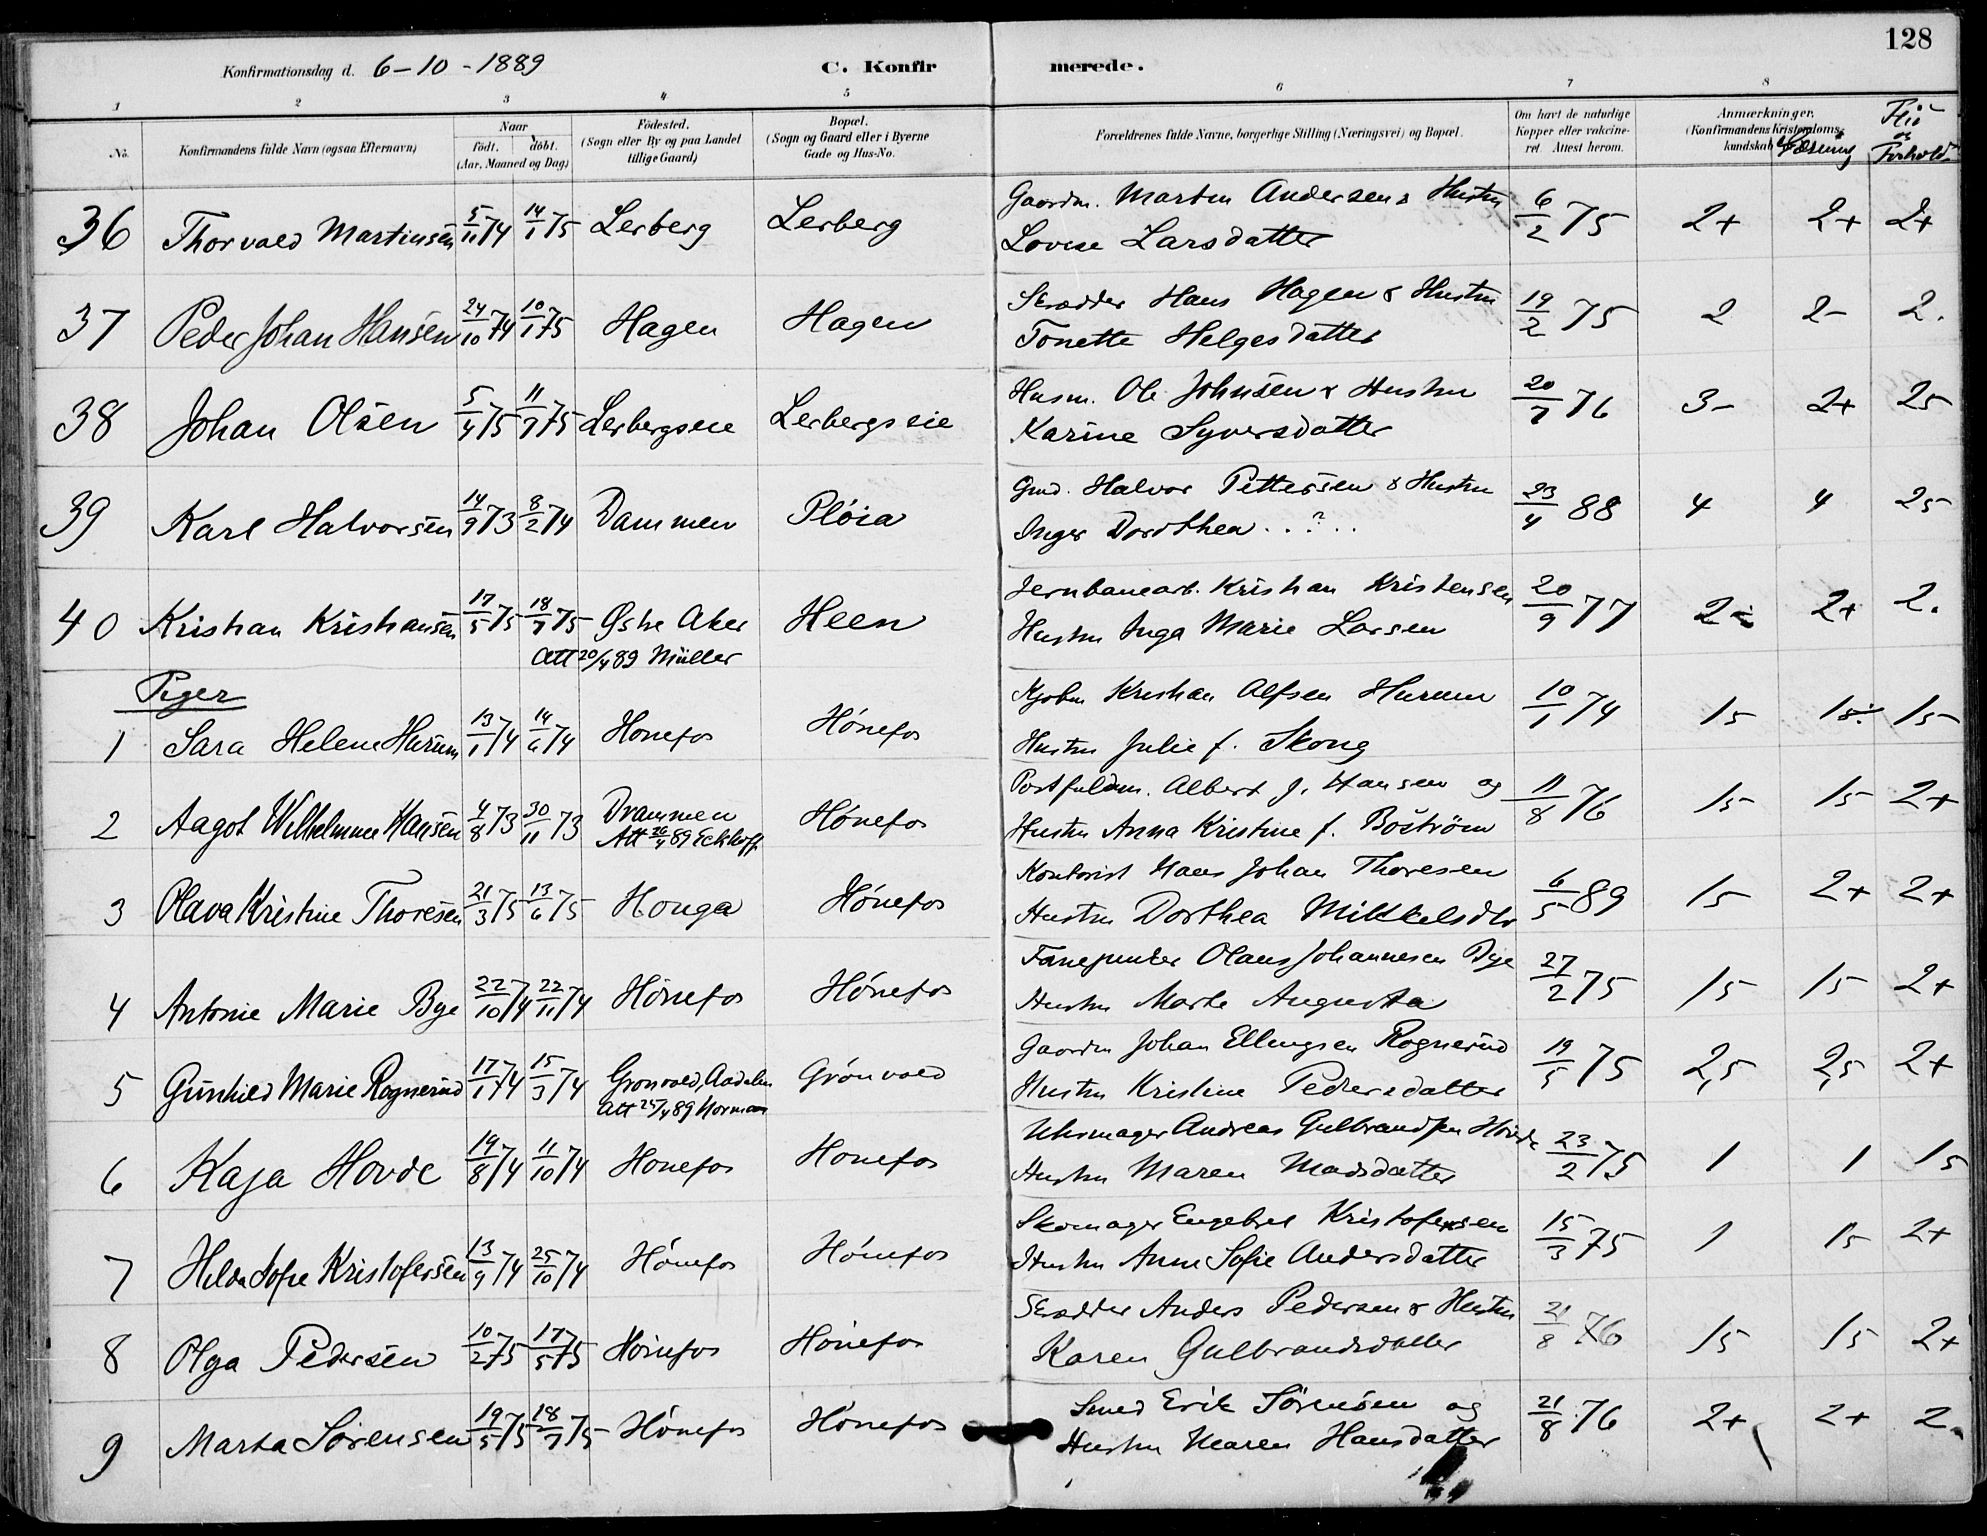 128
Konfirmationsdag d. 6-10-1889 C. Konfirmerede.
1 2 3 4 5 6 7 8
No. Konfirmandens fulde Navn (ogsaa Efternavn) Naar født. døbt. (Aar, Maaned og Dag) Fødested. (Sogn eller By og paa Landet tillige Gaard) Bopæl. (Sogn og Gaard eller i Byerne Gade og Hus-No. Forældrenes fulde Navne, borgerlige Stilling (Næringsvei) og Bopæl. Om havt de naturlige Kopper eller vakcineret. Attest herom. Anmærkninger. (Konfirmandens Kristendomskundskab & Læsning Flid og Forhold
36 Thorvald Martinsen 5/11 74 14/1 75 Lerberg Lerberg Gaardm. Martin Andersen & Hustru 6/2 75 2+ 2+ 2+
Lovise Larsdatter
37 Peder Johan Hansen 24/10 74 10/1 75 Hagen Hagen Skrædder Hans Hagen & Hustru 19/2 75 2 2- 2.
Tonette Helgesdatter
38 Johan Olsen 5/4 75 11/7 75 Lerbergseie Lerbergseie Husm. Ole Johnsen & Hustru 20/7 76 3- 2+ 25
Karine Syversdatter
39 Karl Halvorsen 14/9 73 8/2 74 Dammen Pløia Gmd. Halvor Pettersen & Hustru 23/4 88 4 4 25
Inger Dorothea . . ? . .
40 Kristian Kristiansen 17/5 75 18/7 75 Østre Aker Heen Jernbanearb. Kristian Kristensen 20/9 77 2 2+ 2.
Att 20/4 89 Müller Hustru Inga Marie Larsen
Piger
1 Sara Helene Hurum 13/1 74 14/6 74 Hønefos Hønefos Kjøbm Kristian Alfsen Hurum 10/1 74 15 15 15
Hustru Julie f. Skoug
2 Aagot Wilhelmine Hansen 4/8 73 30/11 73 Drammen Hønefos Postfuldm. Albert J. Hansen og 11/8 76 15 15 2+
Att 26/4 89 Eckhoff Hustru Anna Kristine f. Boström
3 Olava Kristine Thoresen 21/3 75 13/6 75 Honga Hønefos Kontorist Hans Johan Thoresen 6/5 89 15 2+ 2+
Hustru Dorthea Mikkelsdtr
4 Antonie Marie Bye 22/10 74 22/11 74 Hønefos Hønefos Fanejunker Olaus Johannesen Bye 27/2 75 15 15 2+
Hustru Marte Augusta
5 Gunhild Marie Rognerud 17/1 74 15/3 74 Grønvold, Aadalen Grønvold Gaardm Johan Ellingsen Rognerud 19/5 75 2,5 2,5 2+
Att 25/4 89 Horman Hustru Kristine Pedersdatter
6 Kaja Hovde 19/8 74 11/10 74 Hønefos Hønefos Uhrmager Andreas Gulbrandsen Hovde 23/2 75 1 1 15
Hustru Maren Madsdatter
7 Hilda Sofie Kristofersen 13/9 74 25/10 74 Hønefos Hønefos Skomager Engebret Kristofersen 15/3 75 1 15 2+
Hustru Anne Sofie Andersdatter
8 Olga Pedersen 10/2 75 17/5 75 Hønefos Hønefos Skrædder Anders Pedersen & Hustru 21/8 76 15 15 2+
Karen Gulbrandsdatter
9 Marta Sørensen 19/5 75 18/7 75 Hønefos Hønefos Smed Erik Sørensen og 21/8 76 2+ 2+ 2.
Hustru Maren Hansdatter